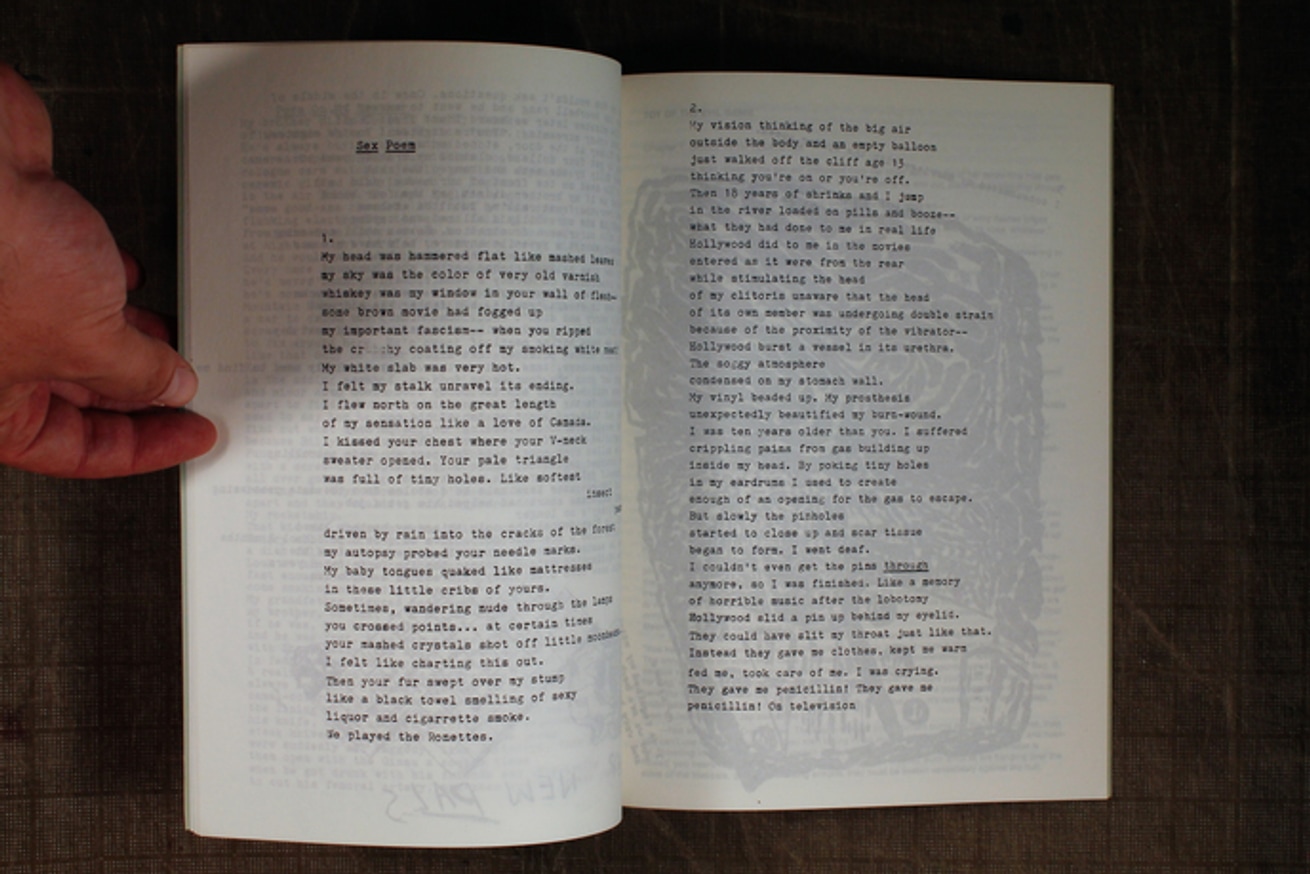 Sex Poem
1.
My head was hammered flat like mashed leaves
my sky was the color of very old varnish
whiskey was my window in your wall of flesh--
some brown movie had fogged up
my important fascism-- when you ripped
the coating off my smoking white meat
My white slab was very hot.
I felt my stalk unravel its ending.
I flew north on the great length
of my sensation like a love of Canada.
I kissed your chest where your V-neck
sweater opened. Your pale triangle
was full of tiny holes. Like softest
insect
driven by rain into the cracks of the forest
my autopsy probed your needle marks.
My baby tongues quaked like mattresses
in these little cribs of yours.
Sometimes, wandering nude through the lamps
you crossed points... at certain times
your mashed crystals shot off little
I felt like charting this out.
Then your fur swept over my stump
like a black towel smelling of sexy
liquor and cigarrette smoke.
We played the Ronettes.
NEW PALS
2.
My vision thinking of the big air
outside the body and an empty balloon
just walked off the cliff age 15
thinking you're on or you're off.
Then 18 years of shrinks and I jump
in the river loaded on pills and booze--
what they had done to me in real life
Hollywood did to me in the movies
entered as it were from the rear
while stimulating the head
of my clitoris unaware that the head
of its own member was undergoing double strain
because of the proximity of the vibrator--
Hollywood burst a vessel in its urethra.
The soggy atmosphere
condensed on my stomach wall.
My vinyl beaded up. My prosthesis
unexpectedly beautified my burn-wound.
I was ten years older than you. I suffered
crippling pains from gas building up
inside my head. By poking tiny holes
in my eardrums I used to create
enough of an opening for the gas to escape.
But slowly the pinholes
started to close up and scar tissue
began to form. I went deaf.
I couldn't even get the pins through
anymore, so I was finished. Like a memory
of horrible music after the lobotomy
Hollywood slid a pin up behind my eyelid.
They could have slit my throat just like that.
Instead they gave me clothes, kept me warm
fed me, took care of me. I was crying.
They gave me penicillin! They gave me
penicillin! On television